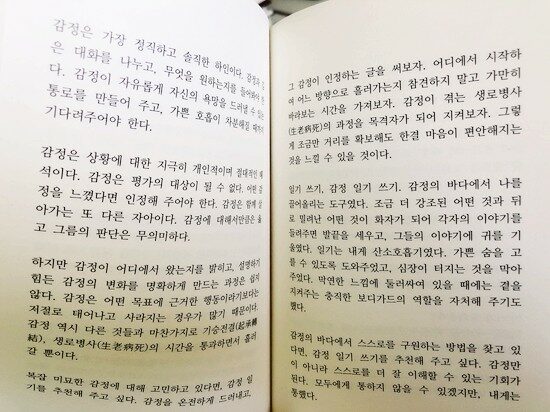 감정은 가장 정직하고 솔직한 하인이다. 감정과
은 대화를 나누고, 무엇을 원하는지를 들어봐야
다. 감정이 자유롭게 자신의 욕망을 드러낼 수 있는
통로를 만들어 주고, 가쁜 호흡이 차분해질 때까지
기다려주어야 한다.
감정은 상황에 대한 지극히 개인적이며 절대적인 해
석이다. 감정은 평가의 대상이 될 수 없다. 어떤 감
정을 느꼈다면 인정해 주어야 한다. 감정은 함께 살
아가는 또 다른 자아이다. 감정에 대해서만큼은 옳
고 그름의 판단은 무의미하다.
하지만 감정이 어디에서 왔는지를 밝히고, 설명하기
힘든 감정의 변화를 명확하게 만드는 과정은 쉽지
않다. 감정은 어떤 목표에 근거한 행동이라기보다는
저절로 태어나고 사라지는 경우가 많기 때문이다.
감정 역시 다른 것들과 마찬가지로 기승전결(起承轉
結), 생로병사(生老病死)의 시간을 통과하면서 흘러
갈 뿐이다.
복잡 미묘한 감정에 대해 고민하고 있다면, 감정 일
기를 추천해 주고 싶다. 감정을 온전하게 드러내고,
그 감정이 인정하는 글을 써보자. 어디에서 시작하
여 어느 방향으로 흘러가는지 참견하지 말고 가만히
바라보는 시간을 가져보자. 감정이 겪는 생로병사
(生老病死)의 과정을 목격자가 되어 지켜보자. 그렇
게 조금만 거리를 확보해도 한결 마음이 편안해지는
것을 느낄 수 있을 것이다.
일기 쓰기, 감정 일기 쓰기. 감정의 바다에서 나를
끌어올리는 도구였다. 조금 더 강조된 어떤 것과 뒤
로 밀려난 어떤 것이 화자가 되어 각자의 이야기를
들려주면 발끝을 세우고, 그들의 이야기에 귀를 기
울였다. 일기는 내게 산소호흡기였다. 가쁜 숨을 고
를 수 있도록 도와주었고, 심장이 터지는 것을 막아
주었다. 막연한 느낌에 둘러싸여 있을 때에는 곁을
지켜주는 충직한 보디가드의 역할을 자처해 주기도
했다.
감정의 바다에서 스스로를 구원하는 방법을 찾고 있
다면, 감정 일기 쓰기를 추천해 주고 싶다. 감정만
이 아니라 스스로를 더 잘 이해할 수 있는 기회가
된다. 모두에게 통하지 않을 수 있겠지만, 내게는
통했다.